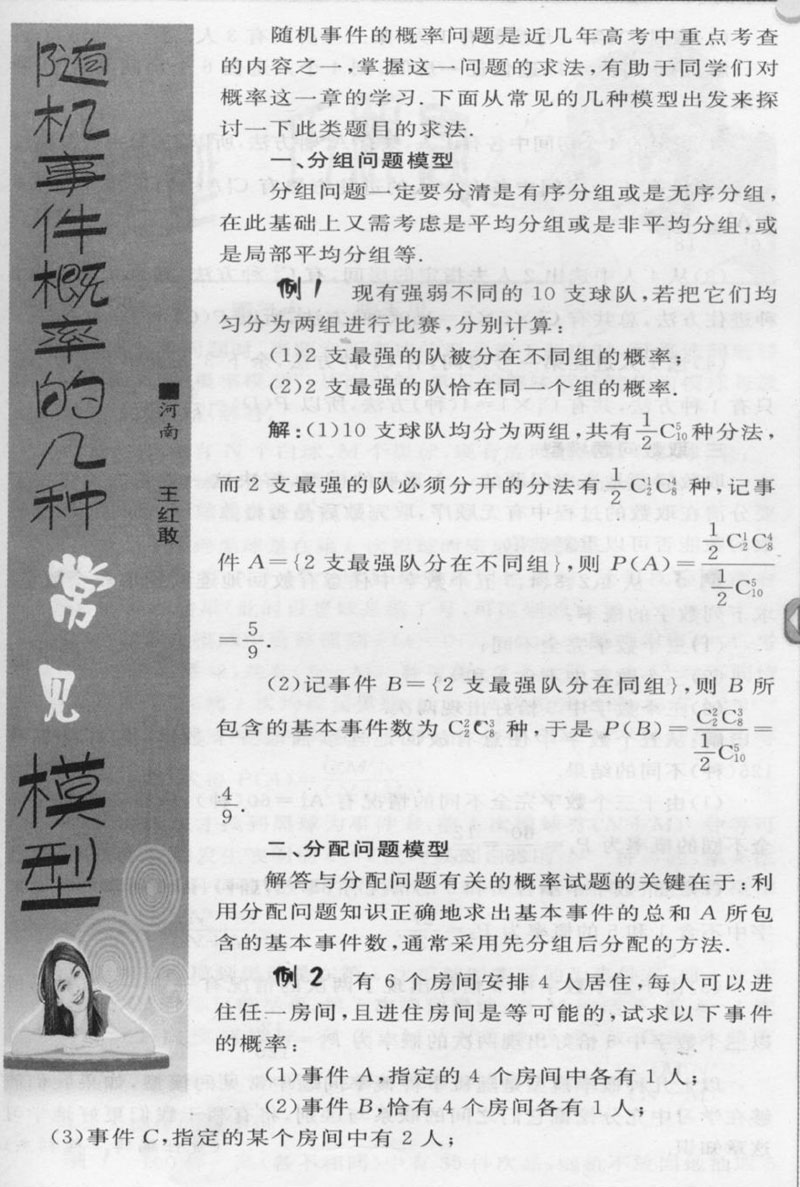 随机事件概率的几种常见模型
■河南 王红敢
随机事件的概率问题是近几年高考中重点考查
的内容之一,掌握这一问题的求法,有助于同学们对
概率这一章的学习.下面从常见的几种模型出发来探
讨一下此类题目的求法.
一、分组问题模型
分组问题一定要分清是有序分组或是无序分组,
在此基础上又需考虑是平均分组或是非平均分组,或
是局部平均分组等.
例1 现有强弱不同的 10 支球队,若把它们均
匀分为两组进行比赛,分别计算:
(1)2 支最强的队被分在不同组的概率;
(2)2 支最强的队恰在同一个组的概率.
解:(1)10 支球队均分为两组,共有 \frac{1}{2}C_{10}^{5} 种分法,
而 2 支最强的队必须分开的分法有 \frac{1}{2}C_{2}^{1}C_{8}^{4} 种,记事
件 A={2 支最强队分在不同组},则 P(A)=\frac{\frac{1}{2}C_{2}^{1}C_{8}^{4}}{\frac{1}{2}C_{10}^{5}}
=\frac{5}{9}.
(2)记事件 B={2 支最强队分在同组},则 B 所
包含的基本事件数为 C_{2}^{2}C_{8}^{3} 种,于是 P(B)=\frac{C_{2}^{2}C_{8}^{3}}{\frac{1}{2}C_{10}^{5}}=
\frac{4}{9}.
二、分配问题模型
解答与分配问题有关的概率试题的关键在于:利
用分配问题知识正确地求出基本事件的总和 A 所包
含的基本事件数,通常采用先分组后分配的方法.
例2 有 6 个房间安排 4 人居住,每人可以进
住任一房间,且进住房间是等可能的,试求以下事件
的概率:
(1)事件 A,指定的 4 个房间中各有 1 人;
(2)事件 B,恰有 4 个房间各有 1 人;
(3)事件 C,指定的某个房间中有 2 人;